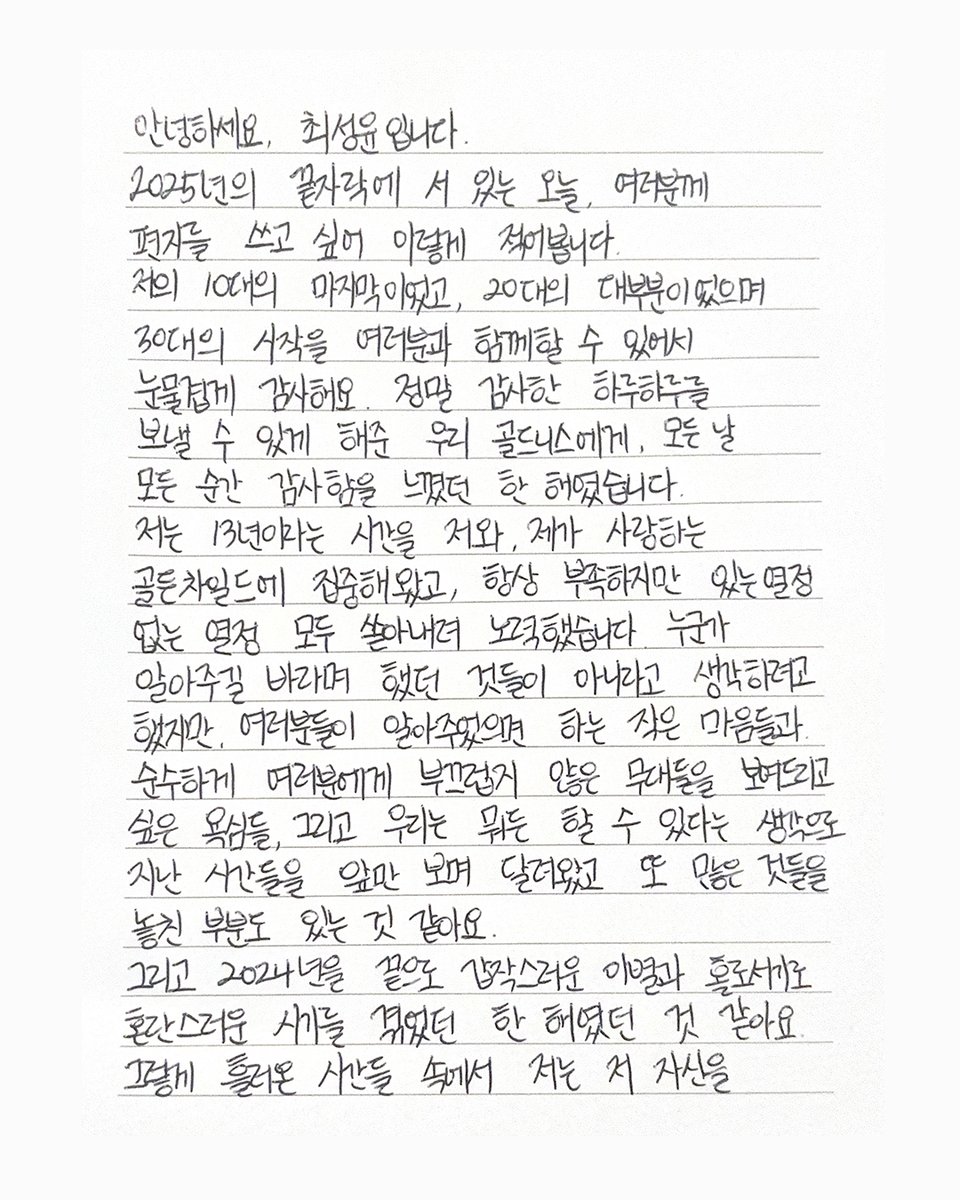 안녕하세요, 최성윤입니다.
2025년의 끝자락에 서 있는 오늘, 여러분께
편지를 쓰고 싶어 이렇게 적어봅니다.
저의 10대의 마지막이었고, 20대의 대부분이었으며
30대의 시작을 여러분과 함께할 수 있어서
눈물겹게 감사해요. 정말 감사한 하루하루를
보낼 수 있게 해준 우리 골드니스에게, 모든 날
모든 순간 감사함을 느꼈던 한 해였습니다.
저는 13년이라는 시간을 저와, 제가 사랑하는
골든차일드에 집중해왔고, 항상 부족하지만 있는 열정
없는 열정 모두 쏟아내려 노력했습니다. 누군가
알아주길 바라며 했던 것들이 아니라고 생각하려고
했지만, 여러분들이 알아주었으면 하는 작은 마음들과,
순수하게 여러분에게 부끄럽지 않은 무대들을 보여드리고
싶은 욕심들, 그리고 우리는 뭐든 할 수 있다는 생각으로
지난 시간들을 앞만 보며 달려왔고 또 많은 것들을
놓친 부분도 있는 것 같아요.
그리고 2024년을 끝으로 갑작스러운 이별과 홀로서기로
혼란스러운 시기를 겪었던 한 해였던 것 같아요.
그렇게 흘러온 시간들 속에서 저는 저 자신을